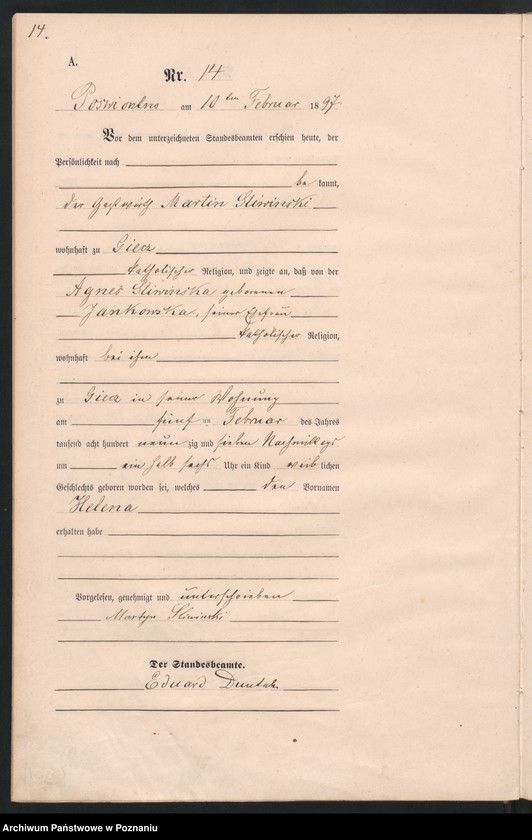 14.
A.
Nr. 14
am 10 ten Februar 1897
Vor dem unterzeichneten Standesbeamten erschien heute, der
Persönlichkeit nach
be kannt,
der Gastwirth Martin Sliwinski
wohnhaft zu Giecz
katholischer Religion, und zeigte an, daß von der
Agnes Sliwinska geborenen
Jankowska, seiner Ehefrau
katholischer Religion,
wohnhaft bei ihm
zu Giecz in seiner Wohnung
am fünf ten Februar des Jahres
tausend acht hundert neun zig und sieben Nachmittags
um ein halb sechs Uhr ein Kind weib lichen
Geschlechts geboren worden sei, welches den Vornamen
Helena
erhalten habe
Vorgelesen, genehmigt und unterschrieben
Martyn Sliwinski
Der Standesbeamte.
Eduard
Archiwum Państwowe w Poznaniu